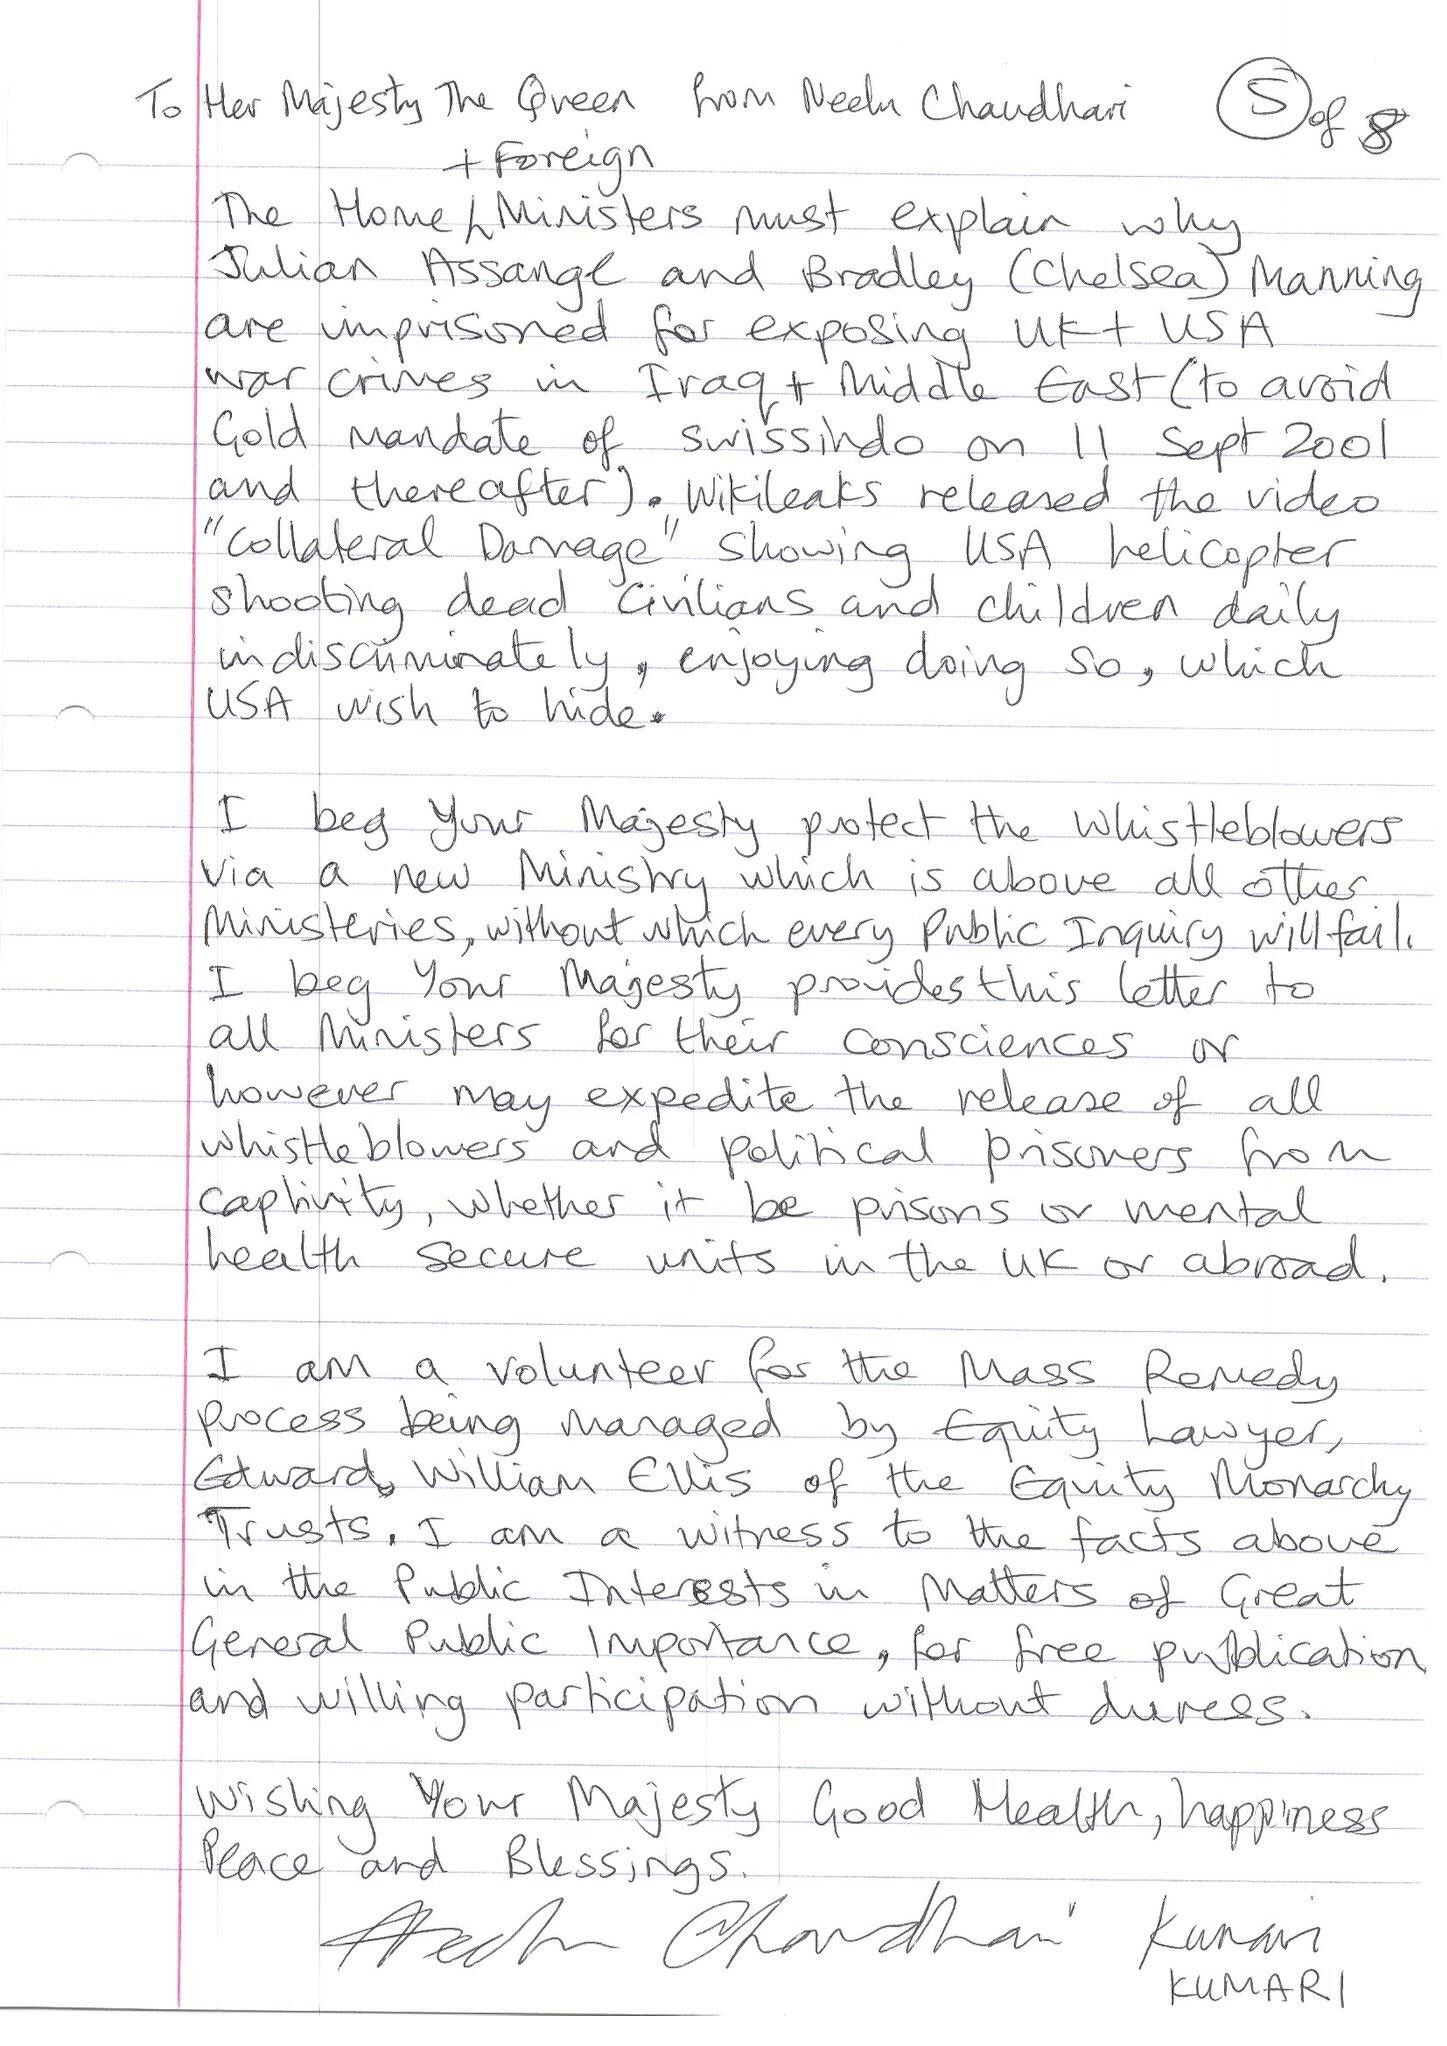 To Her Majesty The Queen from Neelu Chaudhari 5 of 8
+ Foreign
The Home Ministers must explain why
Julian Assange and Bradley (Chelsea) Manning
are imprisoned for exposing UK + USA
war crimes in Iraq + Middle East (to avoid
Gold mandate of swissindo on 11 Sept 2001
and thereafter). Wikileaks released the video
"Collateral Damage" showing USA helicopter
shooting dead civilians and children daily
indiscriminately, enjoying doing so, which
USA wish to hide.
I beg Your Majesty protect the whistleblowers
via a new Ministry which is above all other
Ministeries, without which every Public Inquiry will fail.
I beg Your Majesty provides this letter to
all Ministers for their consciences or
however may expedite the release of all
whistleblowers and political prisoners from
captivity, whether it be prisons or mental
health secure units in the UK or abroad.
I am a volunteer for the Mass Remedy
process being managed by Equity Lawyer,
Edward William Ellis of the Equity Monarchy
Trusts. I am a witness to the facts above
in the Public Interests in Matters of Great
General Public Importance, for free publication
and willing participation without duress.
Wishing Your Majesty Good Health, happiness
Peace and Blessings.
Neelu Chaudhari Kumari
KUMARI